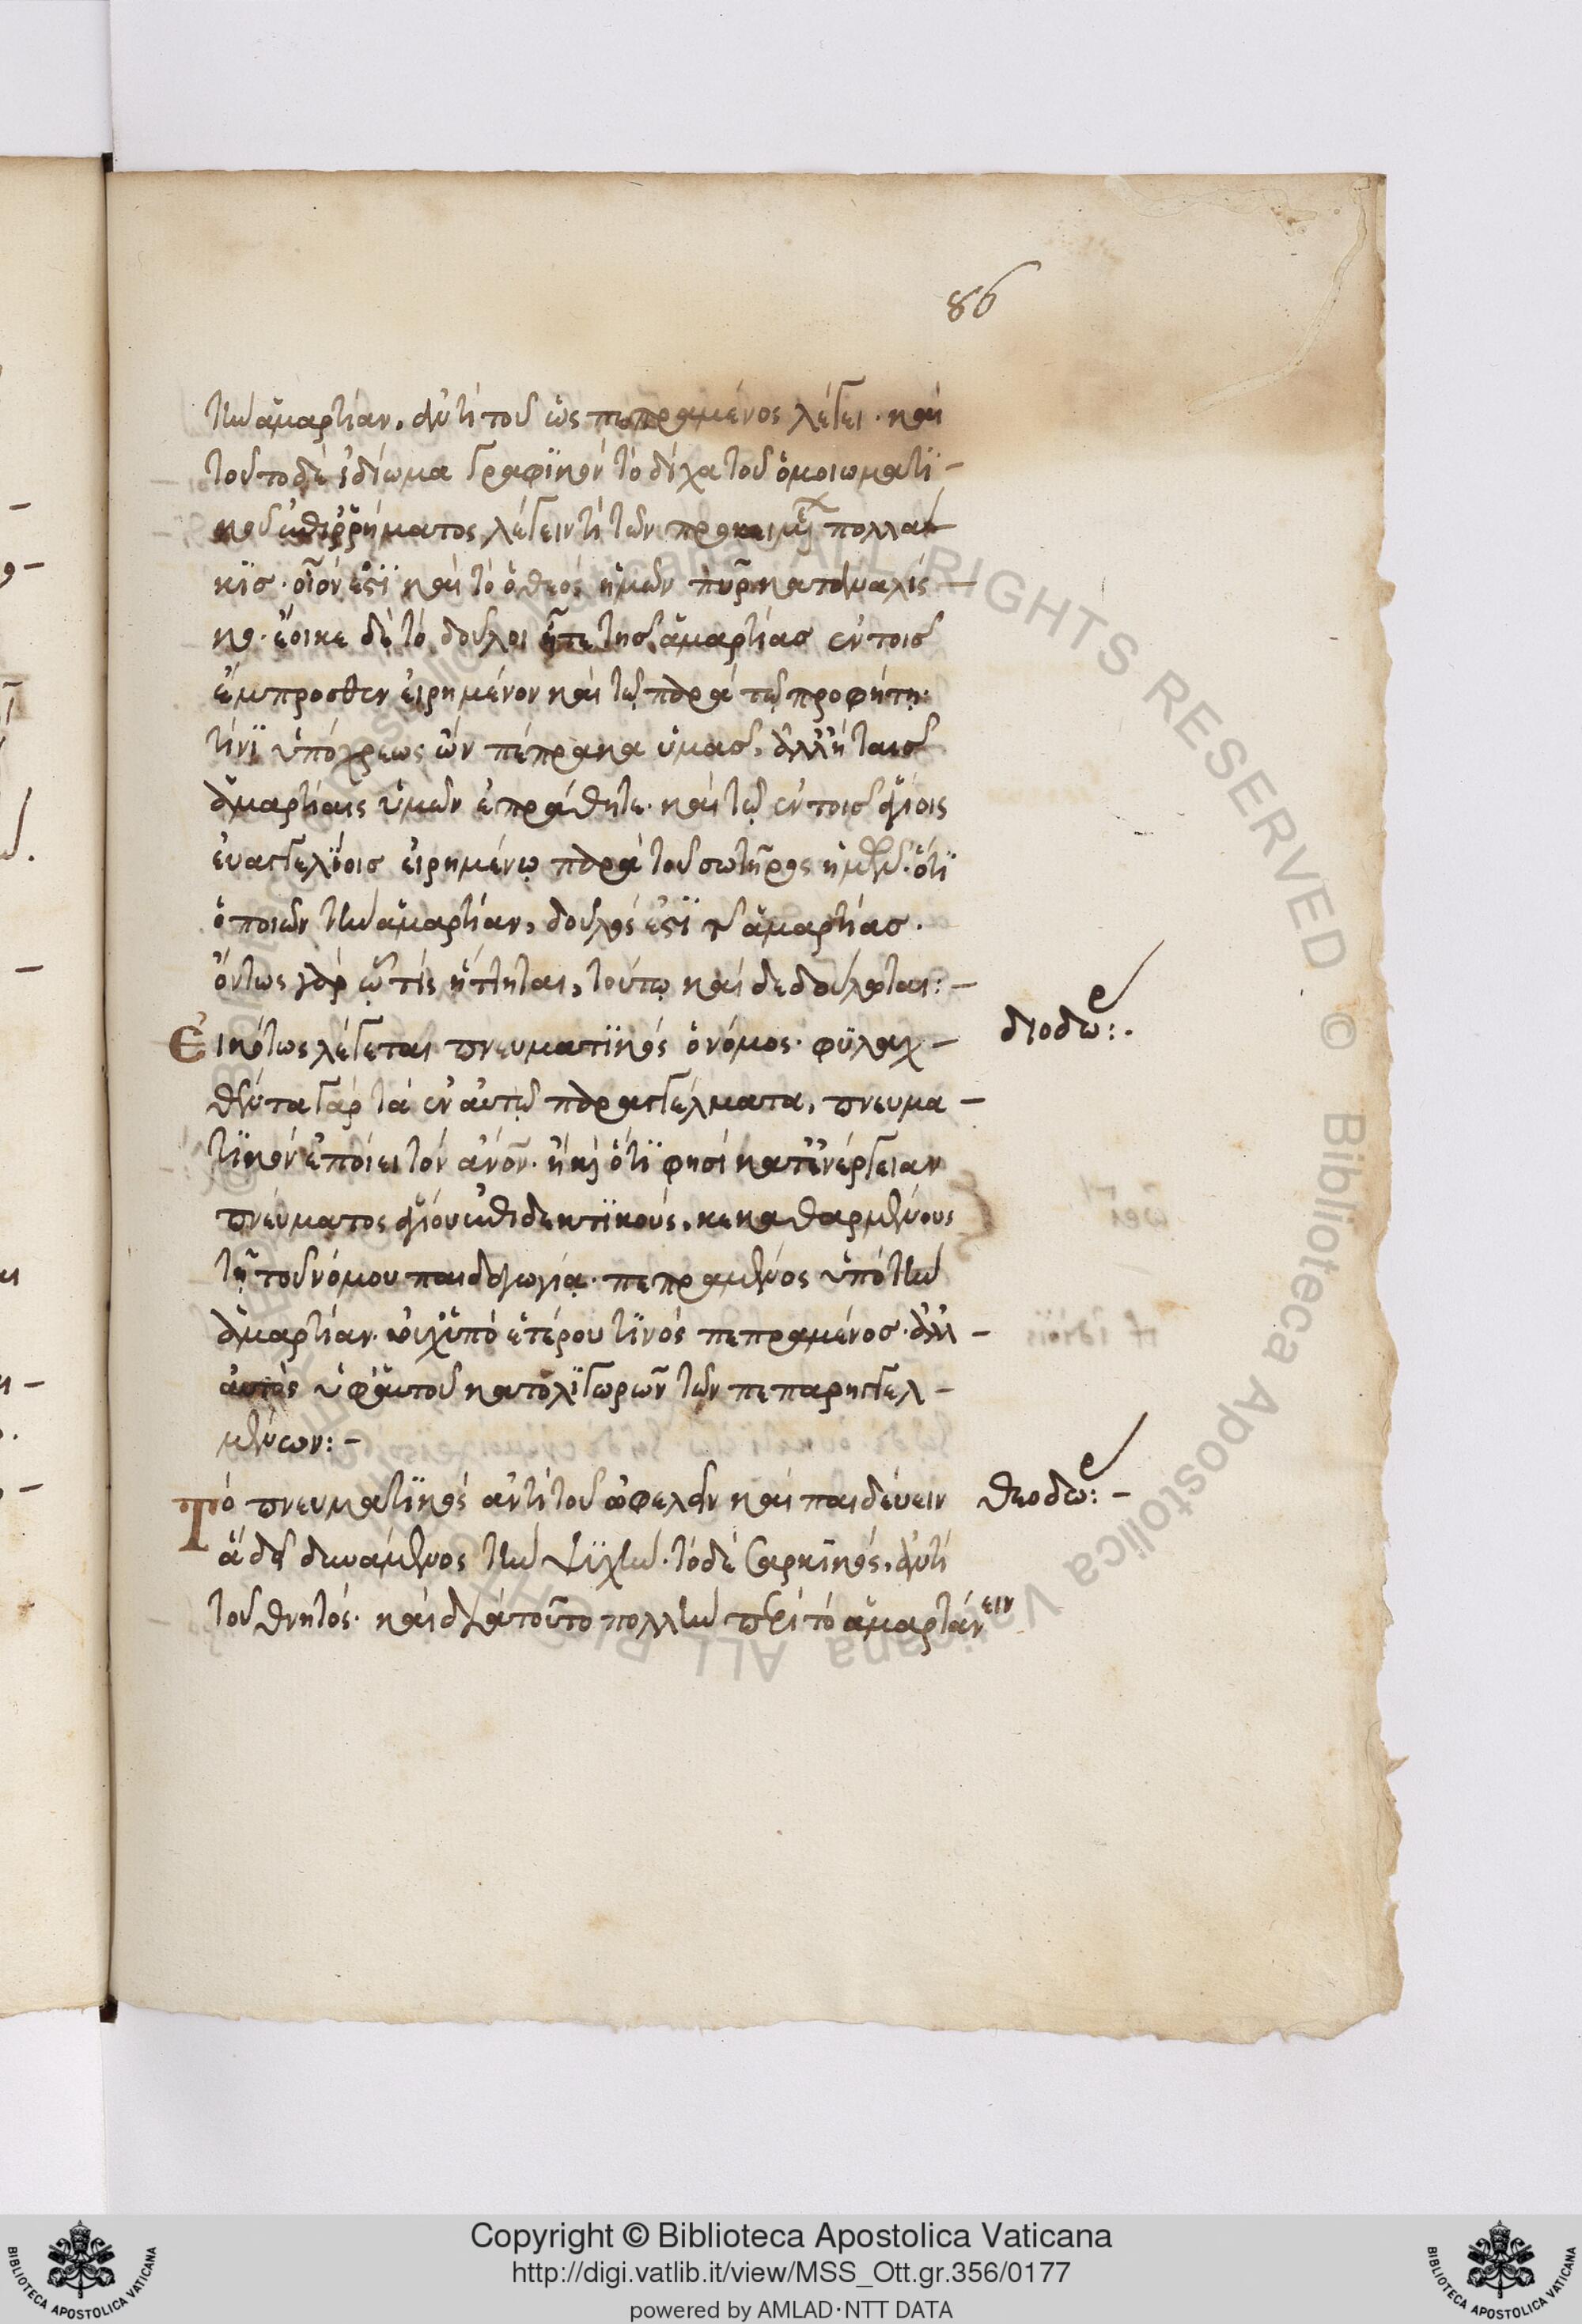 86
τὴν ἁμαρτίαν, ἀντὶ τοῦ ὡς πεπραμένος λέγει· καὶ
τοῦτο δὲ ἰδίωμα γραφϊκὸν τὸ δίχα τοῦ ὁμοιωματϊ-
κοῦ ἐπιρρήματος λέγειν τὶ τῶν προκειμέ πολλά
κϊσ· οἷον ἐστϊ καὶ τὸ ὁ θεὸς ἡμῶν πῦρ καταναλίσ-
κο· ἔοικε δὲ τὸ δοῦλοι ἦτε τῆσ ἁμαρτίασ ἐν τοισ
ἔμπροσθεν εἰρημένον καὶ τῷ παρὰ τῷ προφήτῃ·
τίνϊ ὑπόχρεως ὢν πέπρακα ὑμασ, ἀλλ' ἢ ταισ
ἁμαρτίαις ὑμῶν ἐπράθητε· καὶ τῷ ἐν τοισ ἁγίοις
εὐαγγελΐοισ εἰρημένῳ παρὰ τοῦ σωτῆρος ἡμῶν· ὅτϊ
ὁ ποιῶν τὴν ἁμαρτίαν, δουλός ἐστϊ τ ἁμαρτίασ.
ὄντως γὰρ ᾧ τίς ἥττηται, τούτῳ καὶ δεδούλωται:-
Εἰκότως λέγεται πνευματϊκός ὁ νόμος· φϋλαχ-
θέντα γὰρ τὰ ἐν αὐτῷ παραγγέλματα, πνευμα-
τϊκὸν ἐποίει τὸν ἀνον· ἢ κὶ ὅτϊ φησὶ κατ' ἐνέργειαν
πνεύματος ἁγίου ἐπιδεκτϊκούς, κεκαθαρμένους
τῇ τοῦ νόμου παιδαγωγίᾳ· πεπραμένος ὑπὸ τὴν
ἁμαρτίαν· οὐχ ὑπὸ ἑτέρου τϊνός πεπραμένοσ· ἀλλ-
αὐτὸς ὑφ' ἁυτοῦ κατολϊγωρῶν τῶν πεπαρηγγελ-
μένων:-
διοδω:.
Τό πνευματϊκός ἀντὶ τοῦ ὠφελεῖν καὶ παιδεύειν
ἅ δεῖ δυνάμενος τὴν ψϋχὴν· τὸ δὲ σαρκϊκός, ἀντὶ
τοῦ θνητός· καὶ διὰ τοῦτο πολλὴν περὶ τὸ ἁμαρτάνειν
θεοδω:-
Copyright © Biblioteca Apostolica Vaticana
http://digi.vatlib.it/view/MSS_Ott.gr.356/0177
powered by AMLAD·NTT DATA
BIBLIOTECA APOSTOLICA VATICANA
BIBLIOTECA APOSTOLICA VATICANA
© Biblioteca Apostolica Vaticana ALL RIGHTS RESERVED